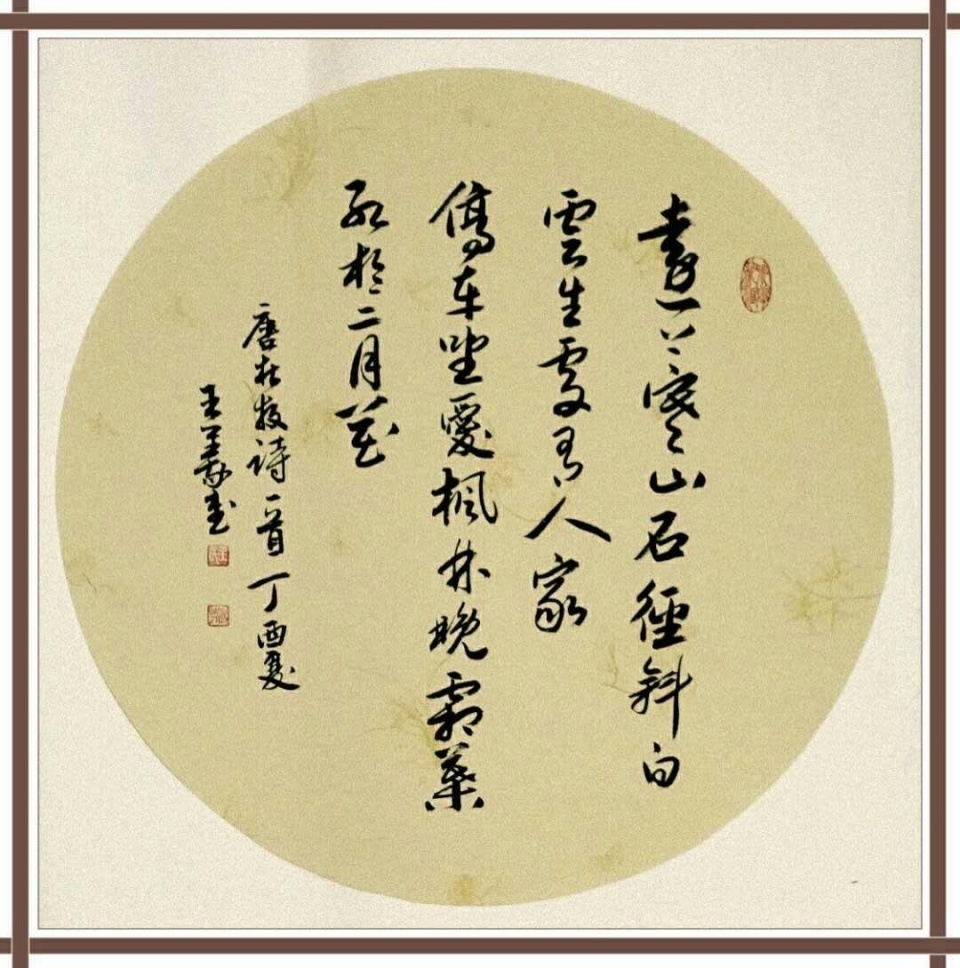 遠上寒山石徑斜白
雲生處有人家
停車坐愛楓林晚霜葉
紅於二月花
唐杜牧詩一首丁酉夏
王書